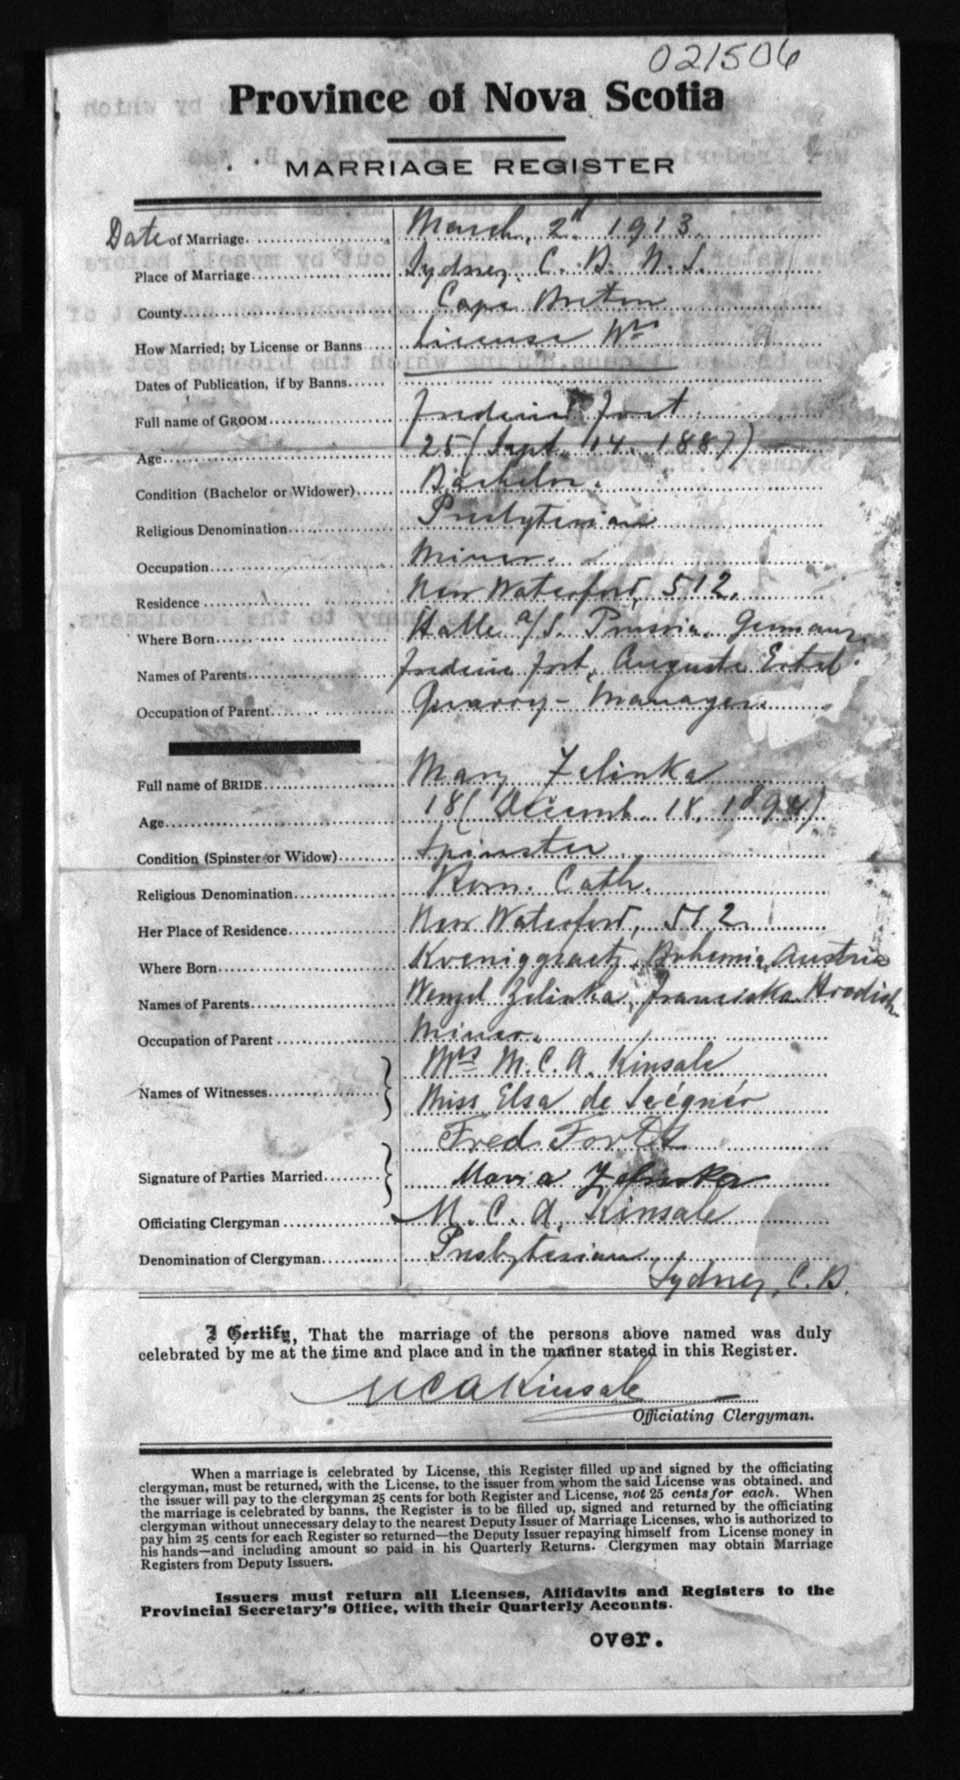 021506
Province of Nova Scotia
MARRIAGE REGISTER
Date of Marriage March, 2nd. 1913.
Place of Marriage Sydney. C. B. N. S.
County Cape Breton
How Married; by License or Banns License
Dates of Publication, if by Banns
Full name of GROOM Frederic Fort
Age 25 (Sept. 14. 1887)
Condition (Bachelor or Widower) Bachelor.
Religious Denomination Presbyterian
Occupation Miner.
Residence New Waterford, 512.
Where Born Halle a/S. Prussia, Germany.
Names of Parents Frederic Fort, Auguste Ertel.
Occupation of Parent Quarry-Manager.
Full name of BRIDE Mary Zelinka
Age 18 (Decemb. 18, 1894)
Condition (Spinster or Widow) Spinster
Religious Denomination Rom. Cath.
Her Place of Residence New Waterford, 512.
Where Born Koeniggraetz, Bohemia, Austria
Names of Parents Wenzel Zelinka, Franciska Hradish
Occupation of Parent Miner.
Names of Witnesses Mrs M. C. A. Kinsale
Miss Elsa de
Signature of Parties Married Fred
Maria Zelinka
Officiating Clergyman M. C. A. Kinsale
Denomination of Clergyman Presbyterian
Sydney, C. B.
I Certify, That the marriage of the persons above named was duly
celebrated by me at the time and place and in the manner stated in this Register.
M C A Kinsale
Officiating Clergyman.
When a marriage is celebrated by License, this Register filled up and signed by the officiating
clergyman, must be returned, with the License, to the issuer from whom the said License was obtained, and
the issuer will pay to the clergyman 25 cents for both Register and License, not 25 cents for each. When
the marriage is celebrated by banns, the Register is to be filled up, signed and returned by the officiating
clergyman without unnecessary delay to the nearest Deputy Issuer of Marriage Licenses, who is authorized to
pay him 25 cents for each Register so returned—the Deputy Issuer repaying himself from License money in
his hands—and including amount so paid in his Quarterly Returns. Clergymen may obtain Marriage
Registers from Deputy Issuers.
Issuers must return all Licenses, Affidavits and Registers to the
Provincial Secretary's Office, with their Quarterly Accounts.
over.